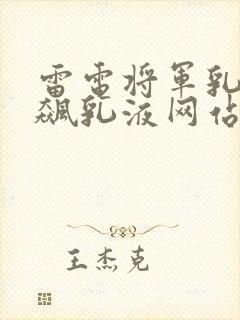 雷电将军乳
飙乳液网站
王杰克